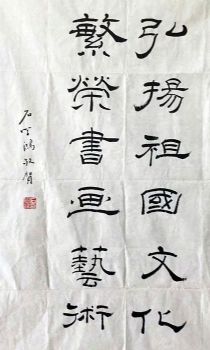 弘揚祖國文化
繁榮書画藝術